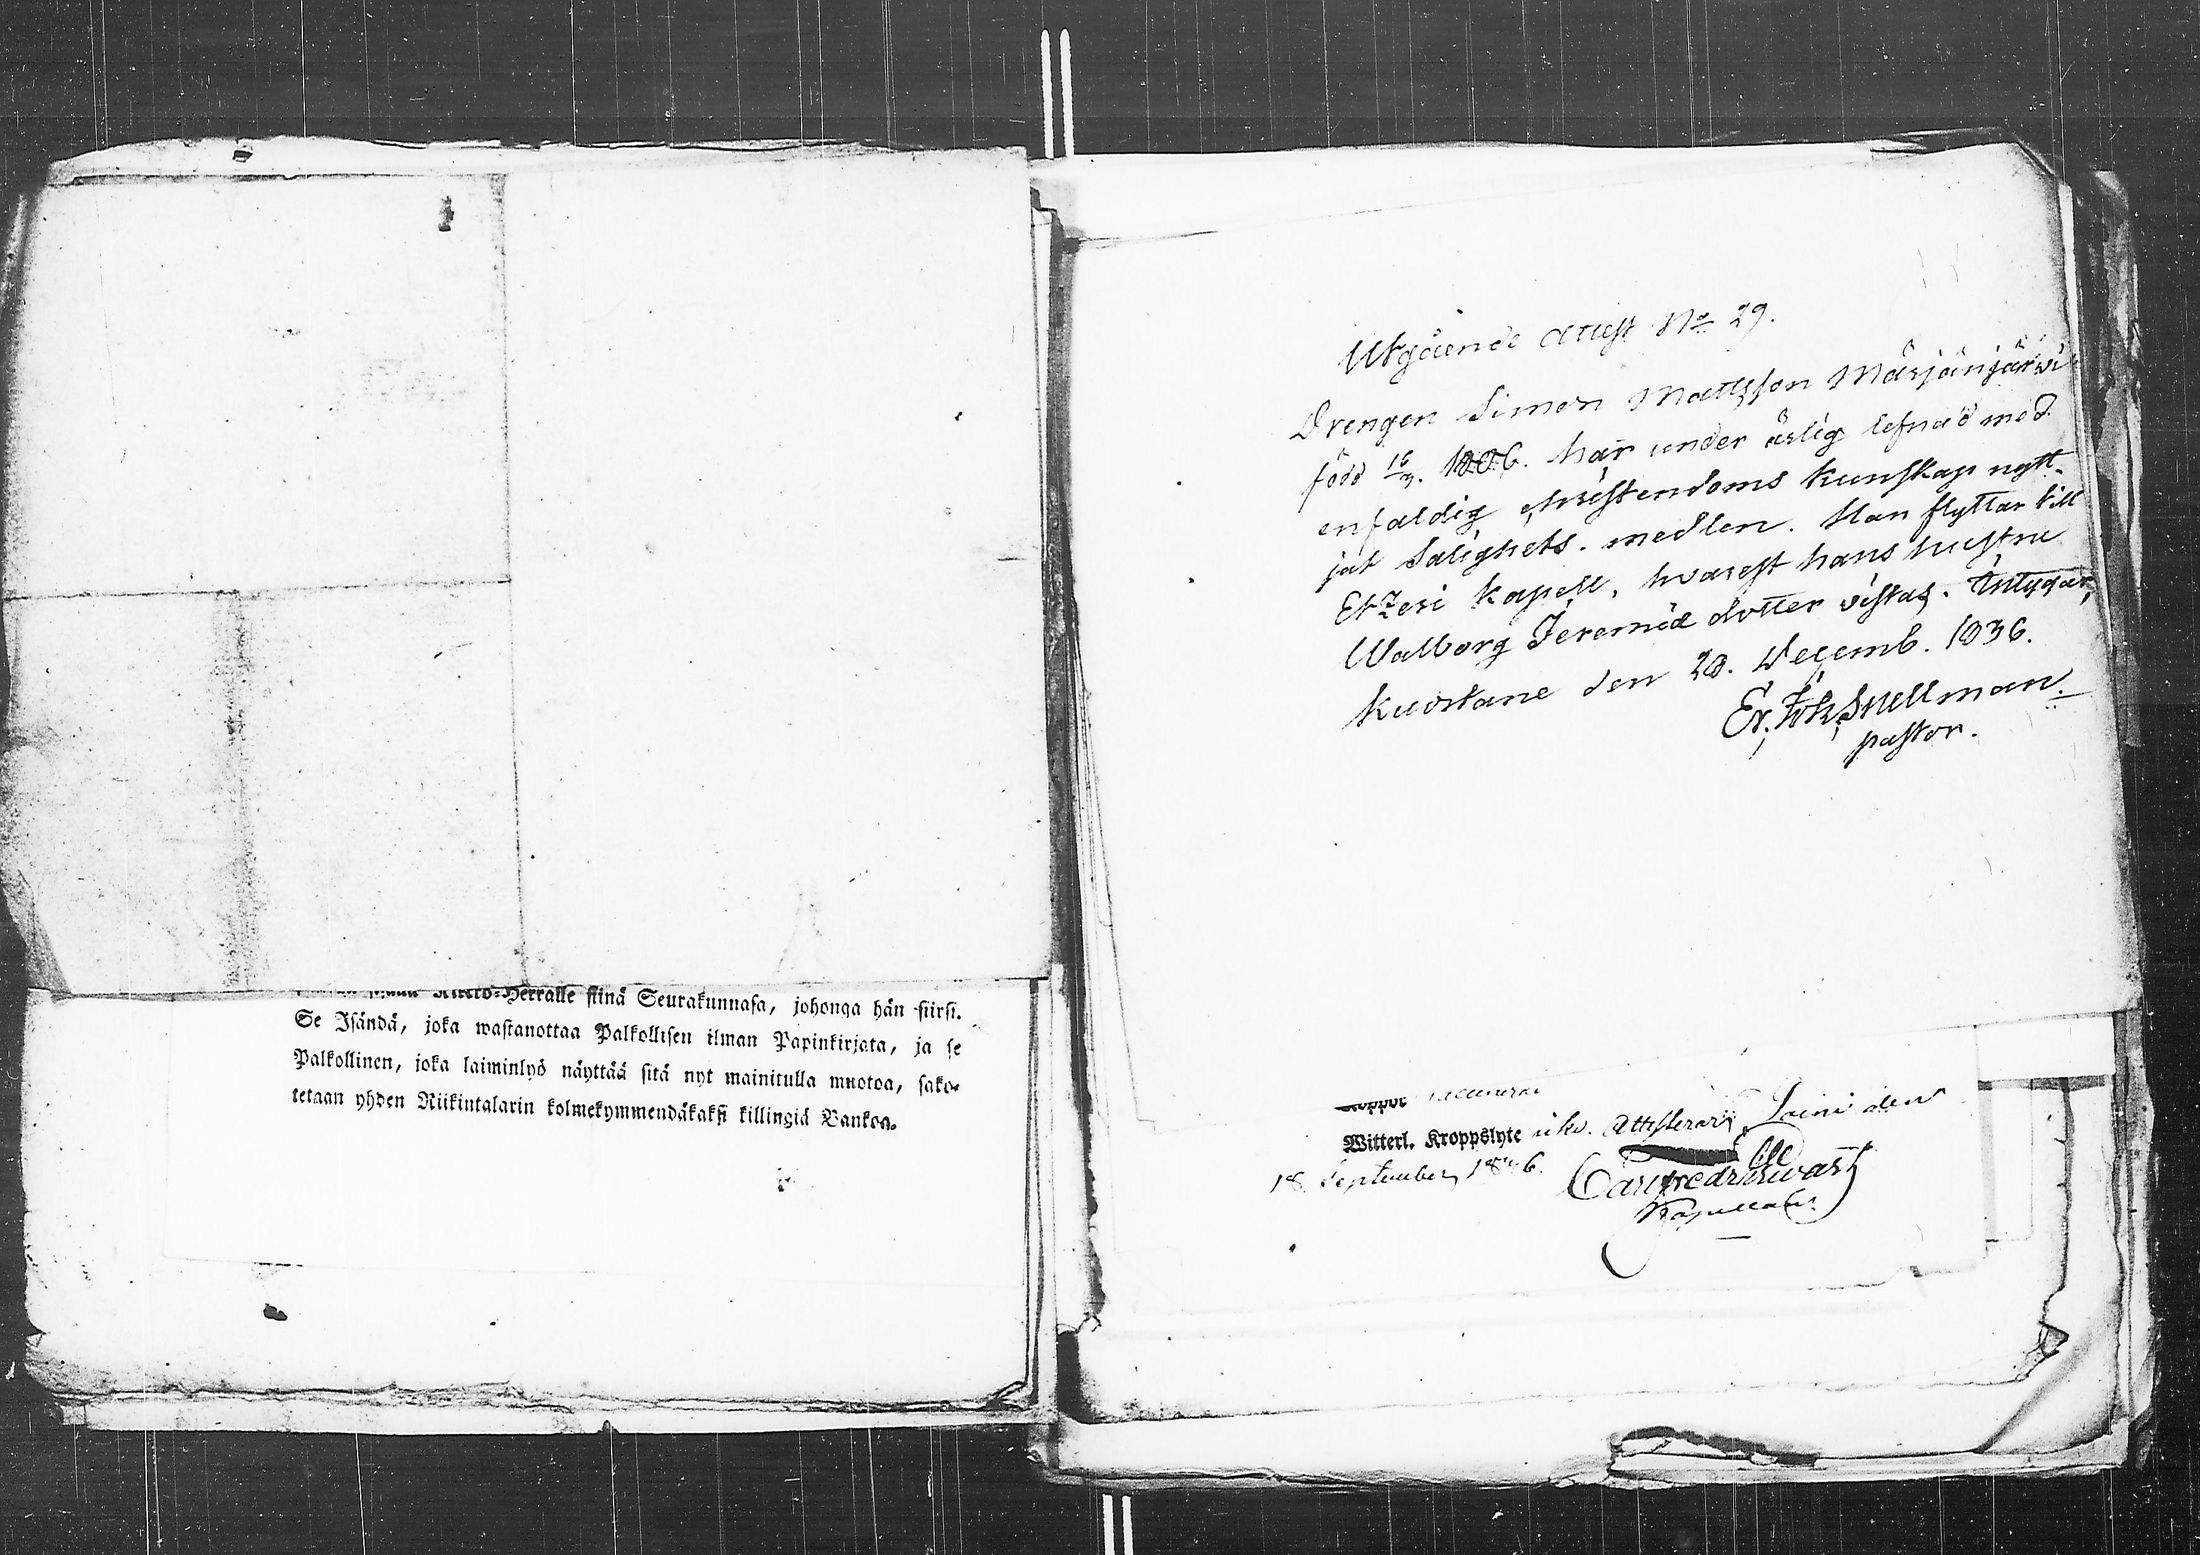 Kirkko-Herralle siinä Seurakunnasa, johonga hän siirsi.
Se Isändä, joka wastanottaa Palkollisen ilman Papinkirjata, ja se
Palkollinen, joka laiminlyö näyttää sitä nyt mainitulla muotoa, sako-
tetaan yhden Riikintalarin kolmekymmendäkaksi killingiä Bankoa.
Utgående Attest No 29.
Drengen Simon Mattsson Märjänjärwi
född 16/3. 1806. har under ärlig lefnad med
enfaldig christendoms kunskap nytt-
jat Salighets-medlen. Han flyttar till
Etzeri kapell, hvarest hans hustru
Walborg Jeremiæ dotter vistas. Intygar,
Kuortane den 28. Decemb. 1836.
Er. Joh Snellman.
pastor.
Koppor vaccinerad
Witterl. Kroppslyte Attesterar, Soini den
18 September 1836.
Kapellan.